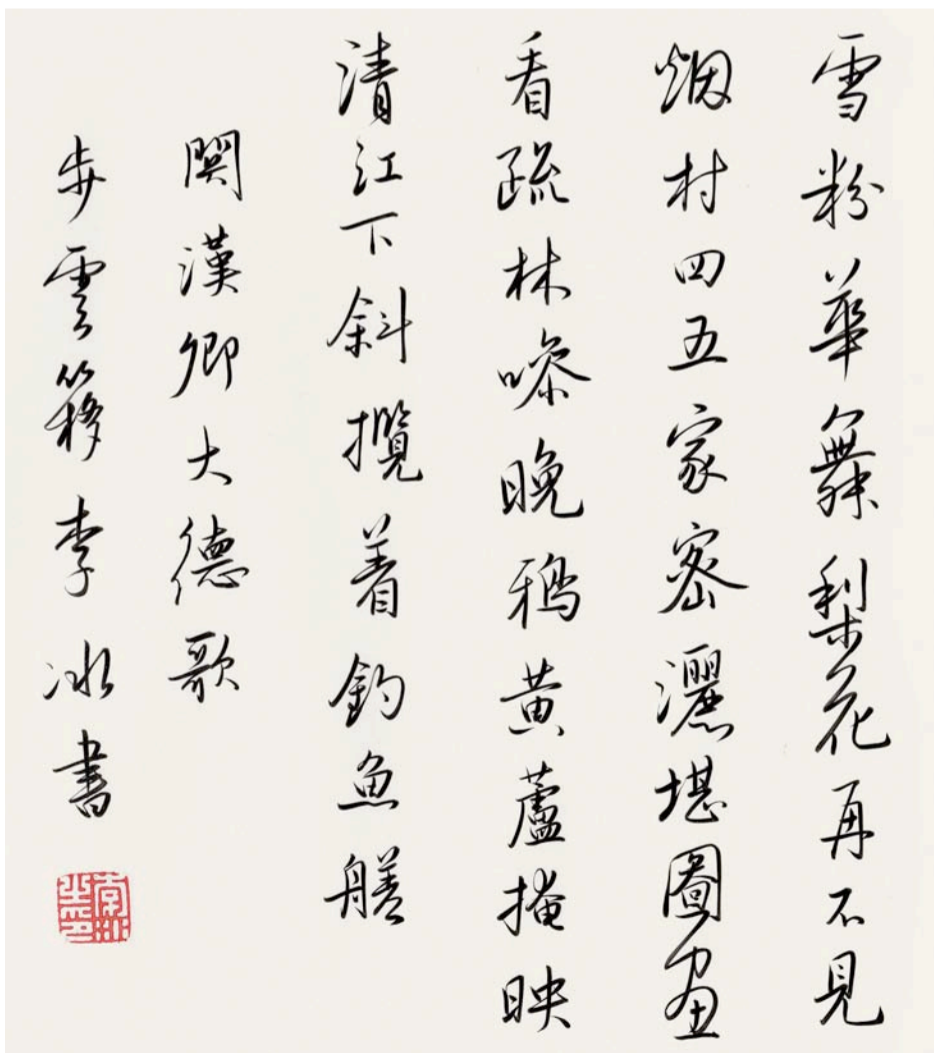 雪粉華舞梨花再不見
烟村四五家密灑堪圖畫
看疏林噪晚鴉黄蘆掩映
清江下斜攬着釣魚艖
關漢卿大德歌
步雲簃李冰書
李冰之印